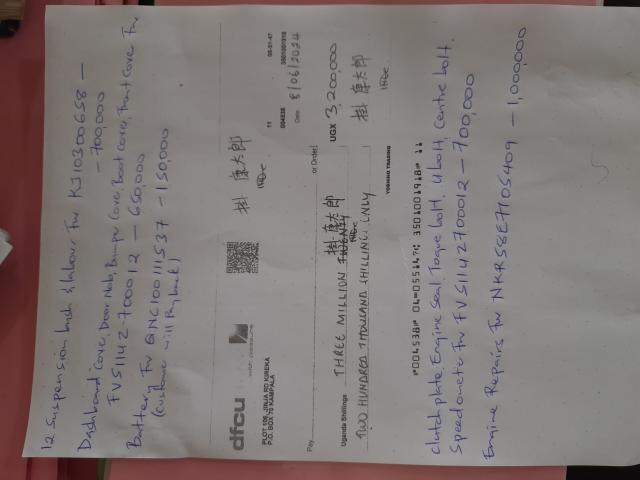 12 Suspension bush & labour for KJ10300658 —
— 700,000
Dashboard Cover, Door Nob, Bumper Cover, Boot Cover, Front Cover for
FVS1142-700012 — 650,000
Battery for QNC100111537 - 150,000
(Customer will Pay back)
dfcu
PLOT 108, JINJA RD KIREKA
P.O. BOX 70 KAMPALA
掛 康太郎
11
004538
Date 8/06/2024
Pay
or Order
Uganda Shillings THREE MILLION TWENTY
掛 康太郎
TWO HUNDRED THOUSAND SHILLINGS ONLY
UGX 3,200,000
掛 康太郎
YOSHINO TRADING
⑈004538⑈ 04⑉0551
11
Clutch plate, Engine Seal, Toque bolt, U bolt, Centre bolt.
Speedometer for FVS1142700012 — 700,000
Engine Repairs for NKR58E7105409 — 1,000,000